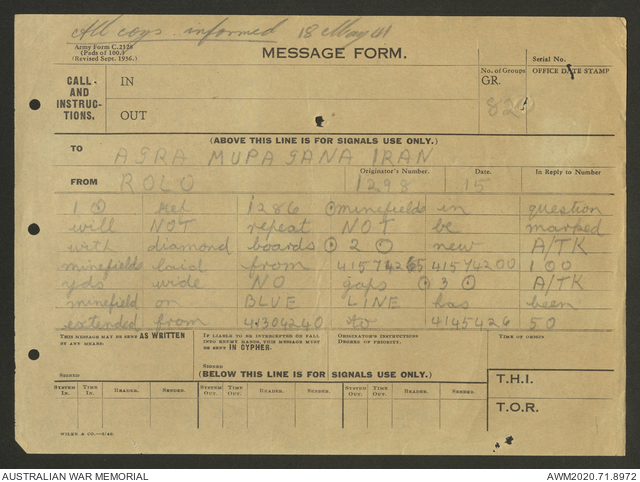 All coys informed 18 May 41
Army Form C.2128
(Pads of 100.)
(Revised Sept. 1936.)
MESSAGE FORM.
Serial No.
CALL-AND INSTRUCTIONS.
IN
No. of Groups GR.
OFFICE DATE STAMP
OUT
82
(ABOVE THIS LINE IS FOR SIGNALS USE ONLY.)
TO AGRA MUPA GANA IRAN
FROM ROLO
Originator's Number. 1298
Date. 15
In Reply to Number
1 ⊙ ref 1286 ⊙ minefields in question
will NOT repeat NOT be marked
with diamond boards ⊙ 2 ⊙ new A/TK
minefields laid from 41574265 41574200 100
yds wide NO gaps ⊙ 3 ⊙ A/TK
minefield on BLUE LINE has been
extended from 43304240 to 4145426 50
THIS MESSAGE MAY BE SENT AS WRITTEN BY ANY MEANS.
IF LIABLE TO BE INTERCEPTED OR FALL INTO ENEMY HANDS, THIS MESSAGE MUST BE SENT IN CYPHER.
ORIGINATOR'S INSTRUCTIONS DEGREE OF PRIORITY.
TIME OF ORIGIN
SIGNED
SIGNED
(BELOW THIS LINE IS FOR SIGNALS USE ONLY.)
T.H.I.
SYSTEM IN. TIME IN. READER. SENDER. SYSTEM OUT. TIME OUT. READER. SENDER. SYSTEM OUT. TIME OUT. READER. SENDER.
T.O.R.
AUSTRALIAN WAR MEMORIAL
AWM2020.71.8972